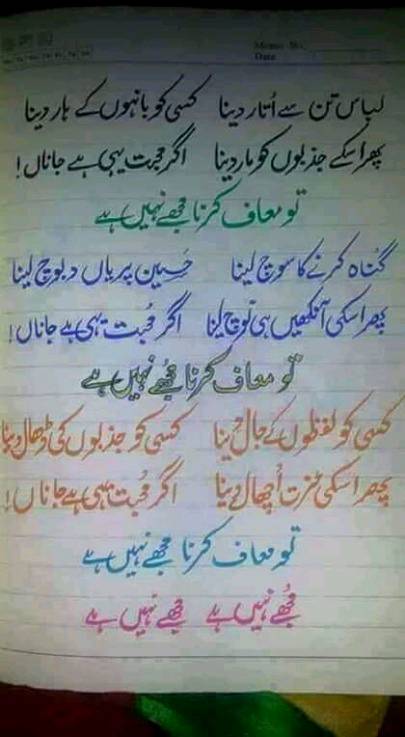 Memo No
Date
لباس تن سے اُتار دینا کسی کو بانہوں کے ہار دینا
پھر اسکے جذبوں کو مار دینا اگر محبت یہی ہے جاناں!
تو معاف کرنا مجھے نہیں ہے
گناہ کرنے کا سوچ لینا حَسِین پریاں دبوچ لینا
پھر اسکی آنکھیں ہی نوچ لینا اگر مُحبت یہی ہے جاناں!
تو معاف کرنا مُجھے نہیں ہے
کسی کو لفظوں کے جال دینا کسی کو جذبوں کی ڈھال دینا
پھر اسکی عزت اُچھال دینا اگر مُحبت یہی ہے جاناں!
تو معاف کرنا مجھے نہیں ہے
مُجھے نہیں ہے مجھے نہیں ہے